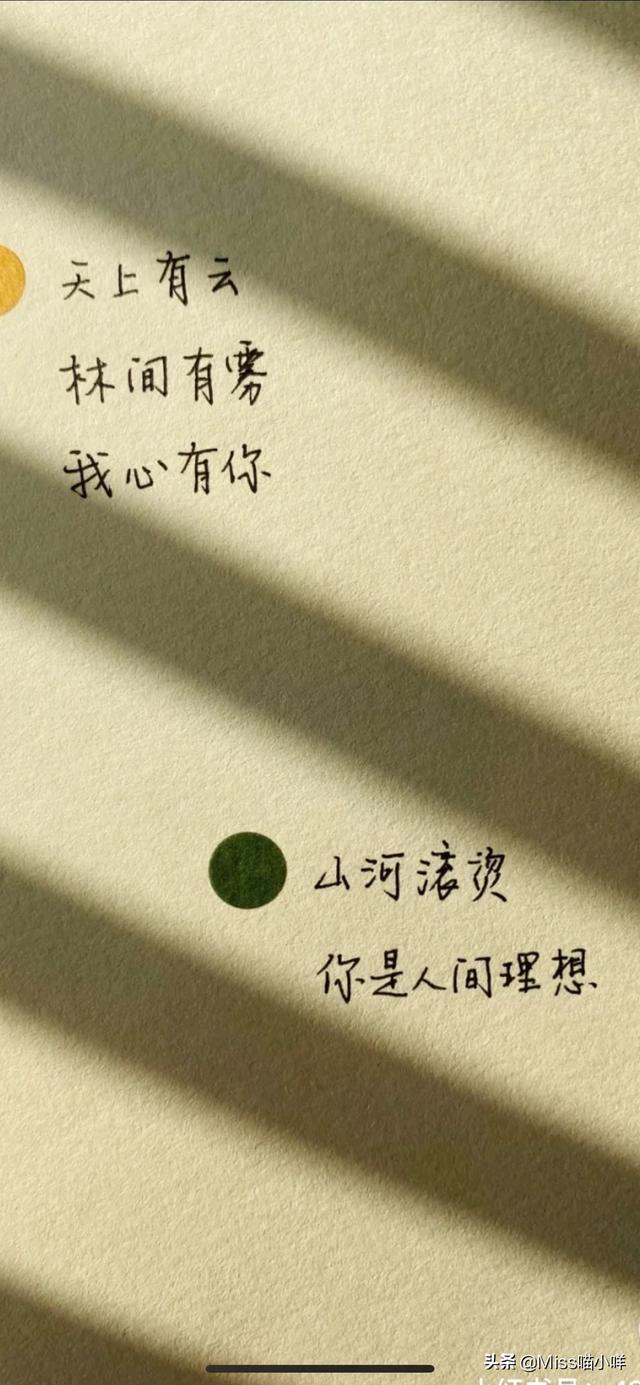 天上有云
林间有雾
我心有你
山河滚烫
你是人间理想.
头条 @Miss喵小咩